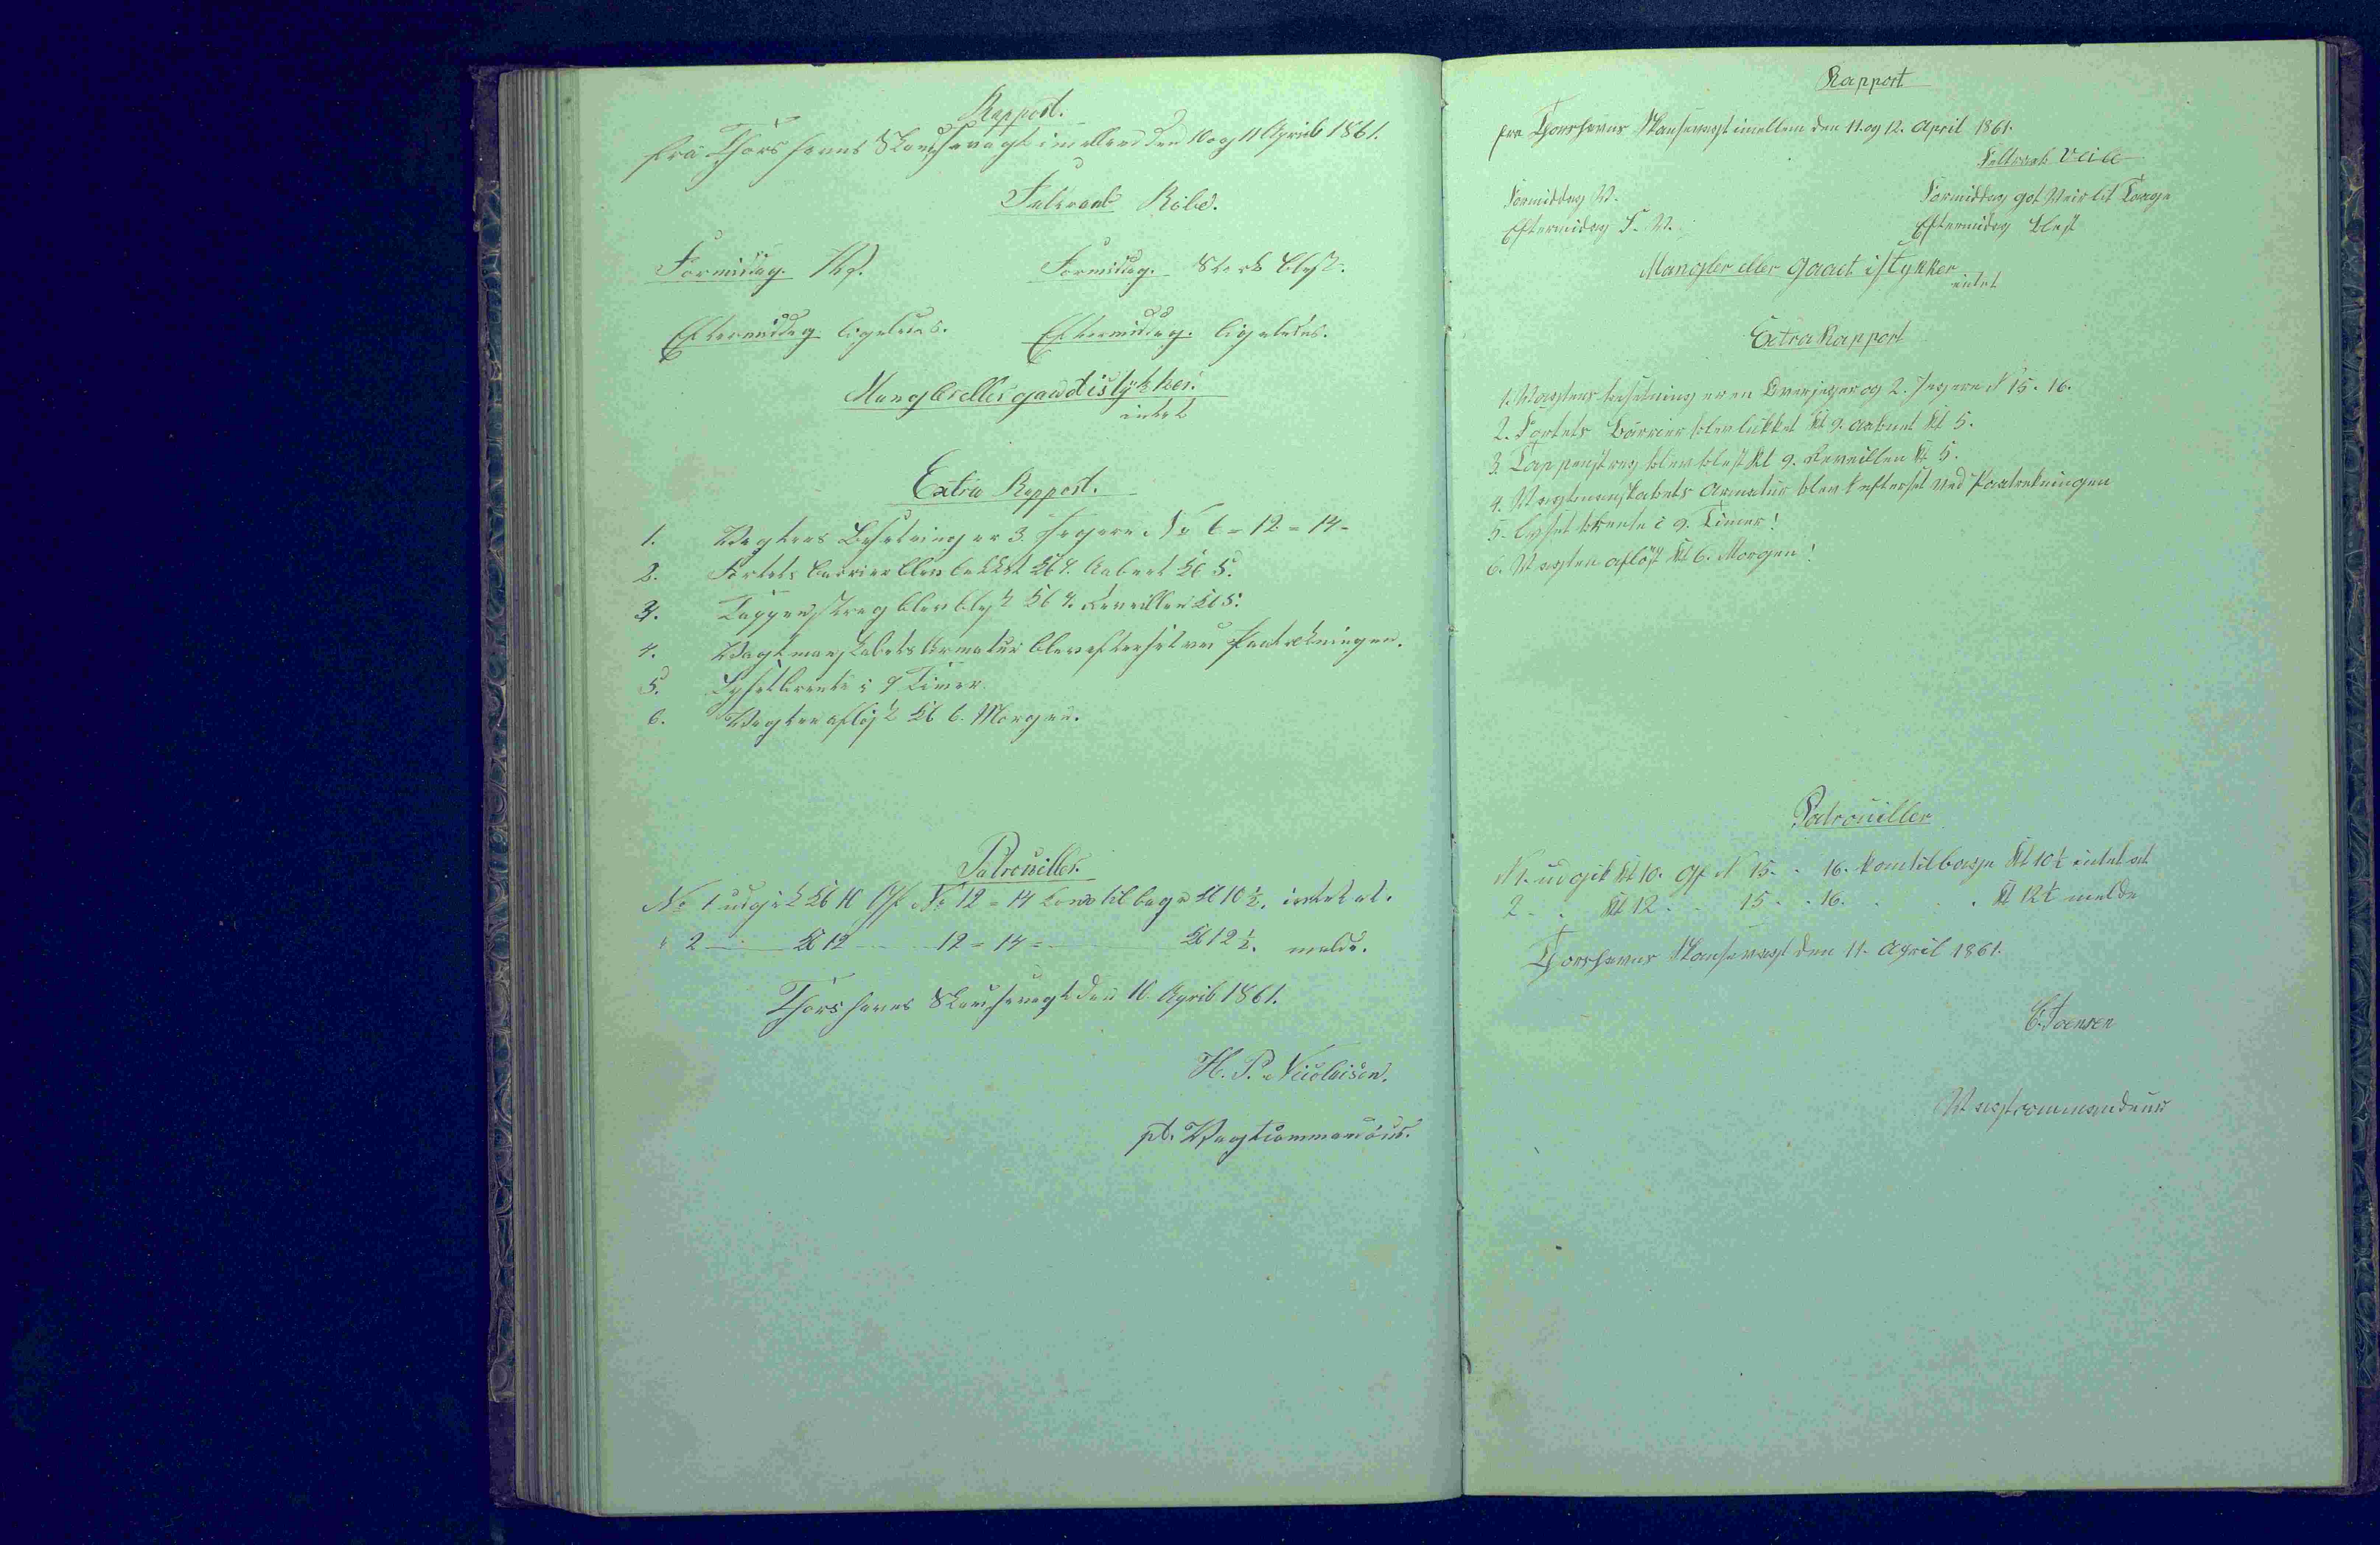 Rapport.
fra Thorshavns Skansevagt imellem den 10 og 11 April 1861.
Feltraab Ribe.
Formiddag. Formiddag. Sterk blest.
Eftermiddag ligeledes. Eftermiddag. ligeledes.
Mangler eller gaaet istykker.
intet
Extra Rapport.
1. Vagtens Besetning er 3 Jegere No 6 = 12 = 14 -
2. Fortets Barrier blev lukket Kl 9. Aabnet Kl 5.
3. Tappenstreg blev blest Kl 9. Reveillen Kl 5.
4. Vagtmanskabets Armatur blev efterset ved Paatrekningen.
5. Lyset brente i 9 Timer.
6. Vagten afløst Kl 6. Morgen.
Patrouiller.
No 1 udgik Kl 10 Gf No 12 = 14 kom tilbage Kl 10½. intet at.
" 2 Kl 12 12 = 14 = Kl 12½. melde.
Thorshavns Skansevagt den 10 April 1861.
H. P. Nicolaisen.
pt. Vagtcommandeur.
Rapport
fra Thorshavns Skansevagt imellem den 11. og 12. April 1861.
Feltraab Veile
Formiddag V. Formiddag got Veir lit Taage
Eftermidag S. V. Eftermidag blest
Mangler eller gaaet istykker
intet
Extra Rapport
1. Vagtens besetning er en Overjeger og 2. Jegere N 15. 16.
2. Fortets Barrier blev lukket Kl 9. aabnet Kl 5.
3. Tappenstreg blev blest Kl 9. Reveillen Kl 5.
4. Vagtmanskabets Armatur blev efterset ved Paatrekningen
5. Lyset brente i 9. Timer!
6. Vagten afløst Kl 6. Morgen!
Patrouiller
N 1. udgik Kl 10. Gf N 15. . 16. kom tilbage Kl 10½ intet at
2 . . Kl 12 . . 15 . . 16. . . . Kl 12½ melde
Thorshavns Skansevagt den 11. April 1861.
Joensen
Vagtcommandeur